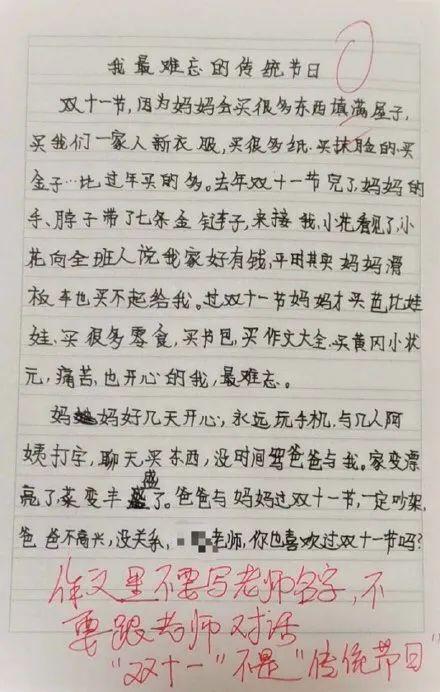 我最难忘的传统节日
双十一节,因为妈妈会买很多东西填满屋子,
买我们一家人新衣服,买很多纸.买抹脸的.买
金子…比过年买的多。去年双十一节完了,妈妈的
手、脖子带了七条金链子,来接我,小花看见了,小
花向全班人说我家好有钱,平日其实妈妈滑
板车也买不起给我。过双十一节妈妈才买芭比娃
娃、买很多零食,买书包,买作文大全、买黄冈小状
元,痛苦,也开心的我,最难忘。
妈妈好几天开心,永远玩手机.与几人阿
姨打字,聊天,买东西,没时间骂爸爸与我。家变漂
亮了,菜变丰盛了。爸爸与妈妈过双十一节,一定吵架,
爸爸不高兴,没关系,老师,你也喜欢过双十一节吗?
作文里不要写老师名字,不
要跟老师对话
"双十一"不是"传统节日"